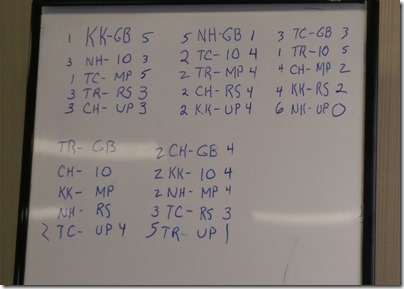 1 KK-GB 5
3 NH-IO 3
1 TC-MP 5
3 TR-RS 3
3 CH-UP 3
5 NH-GB 1
2 TC-IO 4
2 TR-MP 4
2 CH-RS 4
2 KK-UP 4
3 TC-GB 3
1 TR-IO 5
4 CH-MP 2
4 KK-RS 2
6 NH-UP 0
TR-GB
CH-IO
KK-MP
NH-RS
2 TC-UP 4
2 CH-GB 4
2 KK-IO 4
2 NH-MP 4
3 TC-RS 3
5 TR-UP 1